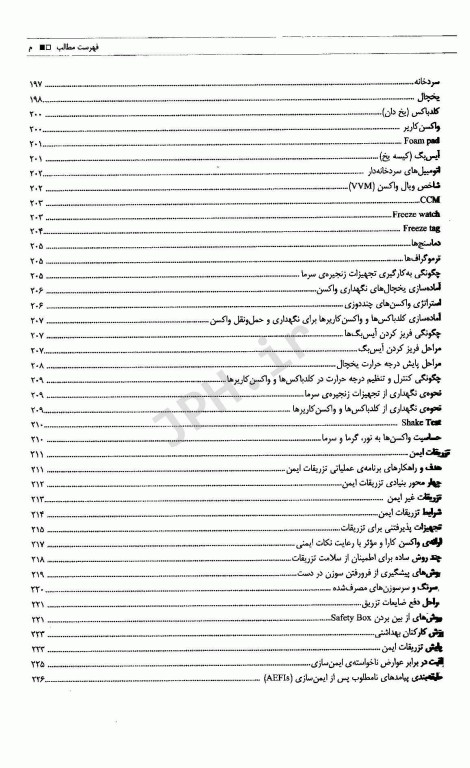 فهرست مطالب □■ م
سردخانه ... ۱۹۷
یخچال ... ۱۹۸
کلدباکس (یخ دان) ... ۲۰۰
واکسن‌کاریر ... ۲۰۰
Foam pad ... ۲۰۱
آیس‌بگ (کیسه یخ) ... ۲۰۱
اتومبیل‌های سردخانه‌دار ... ۲۰۲
شاخص ویال واکسن (VVM) ... ۲۰۲
CCM ... ۲۰۳
Freeze watch ... ۲۰۳
Freeze tag ... ۲۰۴
دماسنج‌ها ... ۲۰۵
ترموگراف‌ها ... ۲۰۵
چگونگی به‌کارگیری تجهیزات زنجیره‌ی سرما ... ۲۰۵
آماده‌سازی یخچال‌های نگهداری واکسن ... ۲۰۶
استراتژی واکسن‌های چنددوزی ... ۲۰۶
آماده‌سازی کلدباکس‌ها و واکسن‌کاریرها برای نگهداری و حمل‌ونقل واکسن ... ۲۰۷
چگونگی فریز کردن آیس‌بگ‌ها ... ۲۰۷
مراحل فریز کردن آیس‌بگ ... ۲۰۷
مراحل پایش درجه حرارت یخچال ... ۲۰۸
چگونگی کنترل و تنظیم درجه حرارت در کلدباکس‌ها و واکسن‌کاریرها ... ۲۰۹
نحوه‌ی نگهداری از تجهیزات زنجیره‌ی سرما ... ۲۰۹
نحوه‌ی نگهداری از کلدباکس‌ها و واکسن‌کاریرها ... ۲۰۹
Shake Test ... ۲۱۰
حساسیت واکسن‌ها به نور، گرما و سرما ... ۲۱۰
تزریقات ایمن ... ۲۱۱
هدف و راهکارهای برنامه‌ی عملیاتی تزریقات ایمن ... ۲۱۱
چهار محور بنیادی تزریقات ایمن ... ۲۱۲
تزریقات غیر ایمن ... ۲۱۳
شرایط تزریقات ایمن ... ۲۱۴
تجهیزات پذیرفتنی برای تزریقات ... ۲۱۵
ارائه‌ی واکسن کارا و مؤثر با رعایت نکات ایمنی ... ۲۱۷
چند روش ساده برای اطمینان از سلامت تزریقات ... ۲۱۸
روش‌های پیشگیری از فرورفتن سوزن در دست ... ۲۱۹
سرنگ و سرسوزن‌های مصرف‌شده ... ۲۲۰
مراحل دفع ضایعات تزریق ... ۲۲۱
روش‌های از بین بردن Safety Box ... ۲۲۱
کارکنان بهداشتی ... ۲۲۳
پایش تزریقات ایمن ... ۲۲۳
در برابر عوارض ناخواسته‌ی ایمن‌سازی ... ۲۲۵
طبقه‌بندی پیامدهای نامطلوب پس از ایمن‌سازی (AEFIs) ... ۲۲۶
JPH.ir